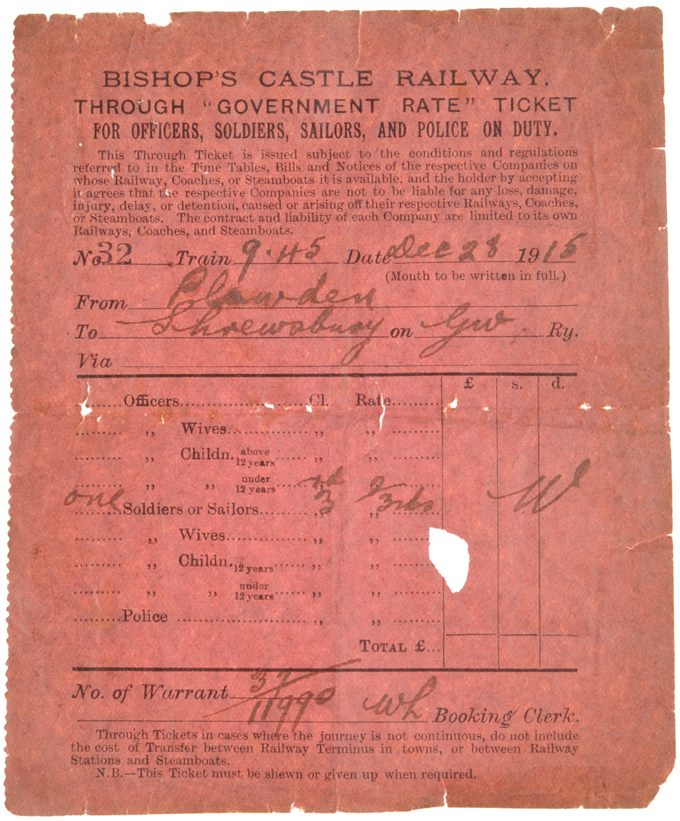 BISHOP'S CASTLE RAILWAY.
THROUGH "GOVERNMENT RATE" TICKET
FOR OFFICERS, SOLDIERS, SAILORS, AND POLICE ON DUTY.
This Through Ticket is issued subject to the conditions and regulations
referred to in the Time Tables, Bills and Notices of the respective Companies on
whose Railway, Coaches, or Steamboats it is available, and the holder by accepting
it agrees that the respective Companies are not to be liable for any loss, damage,
injury, delay, or detention, caused or arising off their respective Railways, Coaches,
or Steamboats. The contract and liability of each Company are limited to its own
Railways, Coaches, and Steamboats.
No. 32 Train 9.45 Date Dec 28 1915
(Month to be written in full.)
From Plowden
To Shrewsbury on GW Ry.
Via
£ s. d.
Officers Cl. Rate
,, Wives ,, ,,
,, Childn. above 12 years ,, ,,
,, ,, under 12 years ,, ,,
one Soldiers or Sailors 3rd 2/3rds W
,, Wives ,, ,,
,, Childn. 12 years ,, ,,
,, ,, under 12 years ,, ,,
Police ,, ,,
TOTAL £
No. of Warrant 32/11990
WL Booking Clerk.
Through Tickets in cases where the journey is not continuous, do not include
the cost of Transfer between Railway Terminus in towns, or between Railway
Stations and Steamboats.
N.B.—This Ticket must be shewn or given up when required.